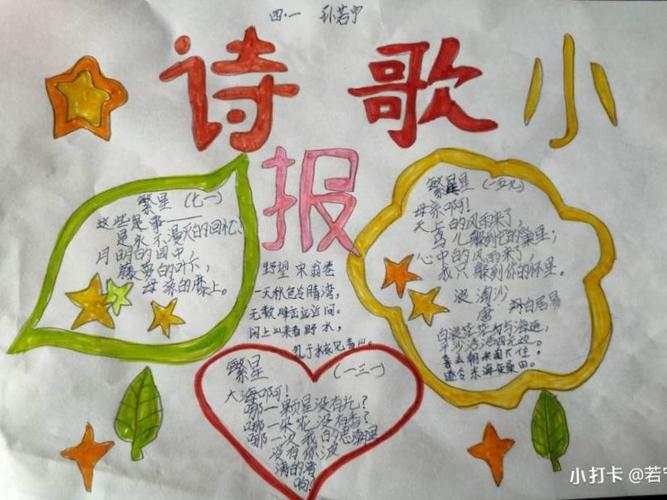 四·一 孙若宁
诗歌小
报
繁星(七一)
这些是事——
是永不漫灭的回忆:
月明的园中,
藤萝的叶下,
母亲的膝上。
繁星(一五九)
母亲啊!
天上的风雨来了,
鸟儿躲到它的巢里;
心中的风雨来了,
我只躲到你的怀里。
浪淘沙
唐 白居易
白浪茫茫与海连,
平沙浩浩四无边。
暮去朝来淘不住,
遂令东海变桑田。
野望 宋 翁卷
一天秋色冷晴湾,
无数峰峦远近间。
闲上山来看野水,
繁星 (一三一)
大海啊!
哪一颗星没有光?
哪一朵花没有香?
哪一次我的思潮里
没有你波
涛的清
响?
小打卡 @若宁